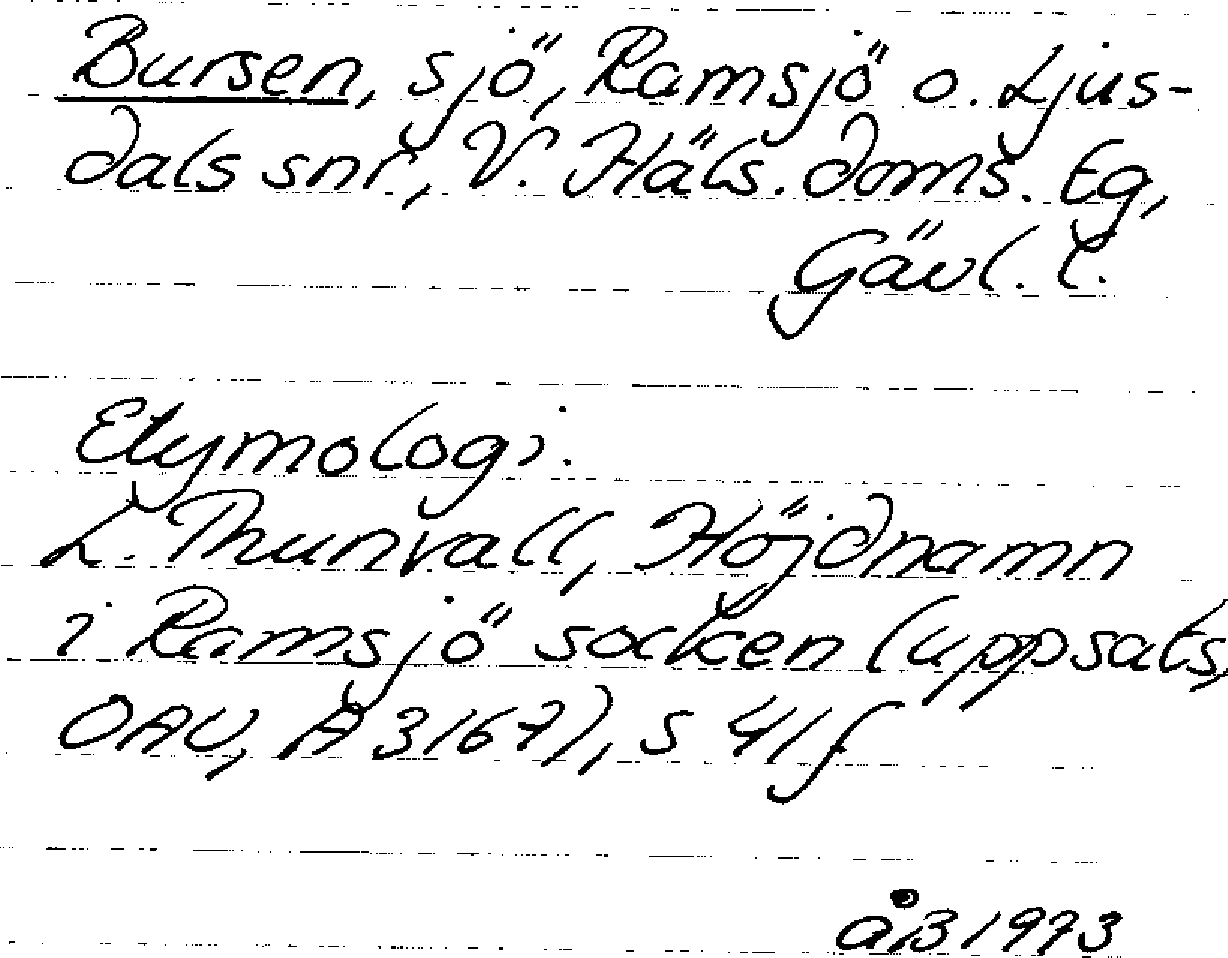 Bursen, sjö, Ramsjö o. Ljus-
dals snr, V. Häls. doms. tg,
Gävl. l.
Etymologi.
L. Thunvall, Höjdnamn
i Ramsjö socken (uppsats,
OAU, A 3167), s 41 f
åB 1973